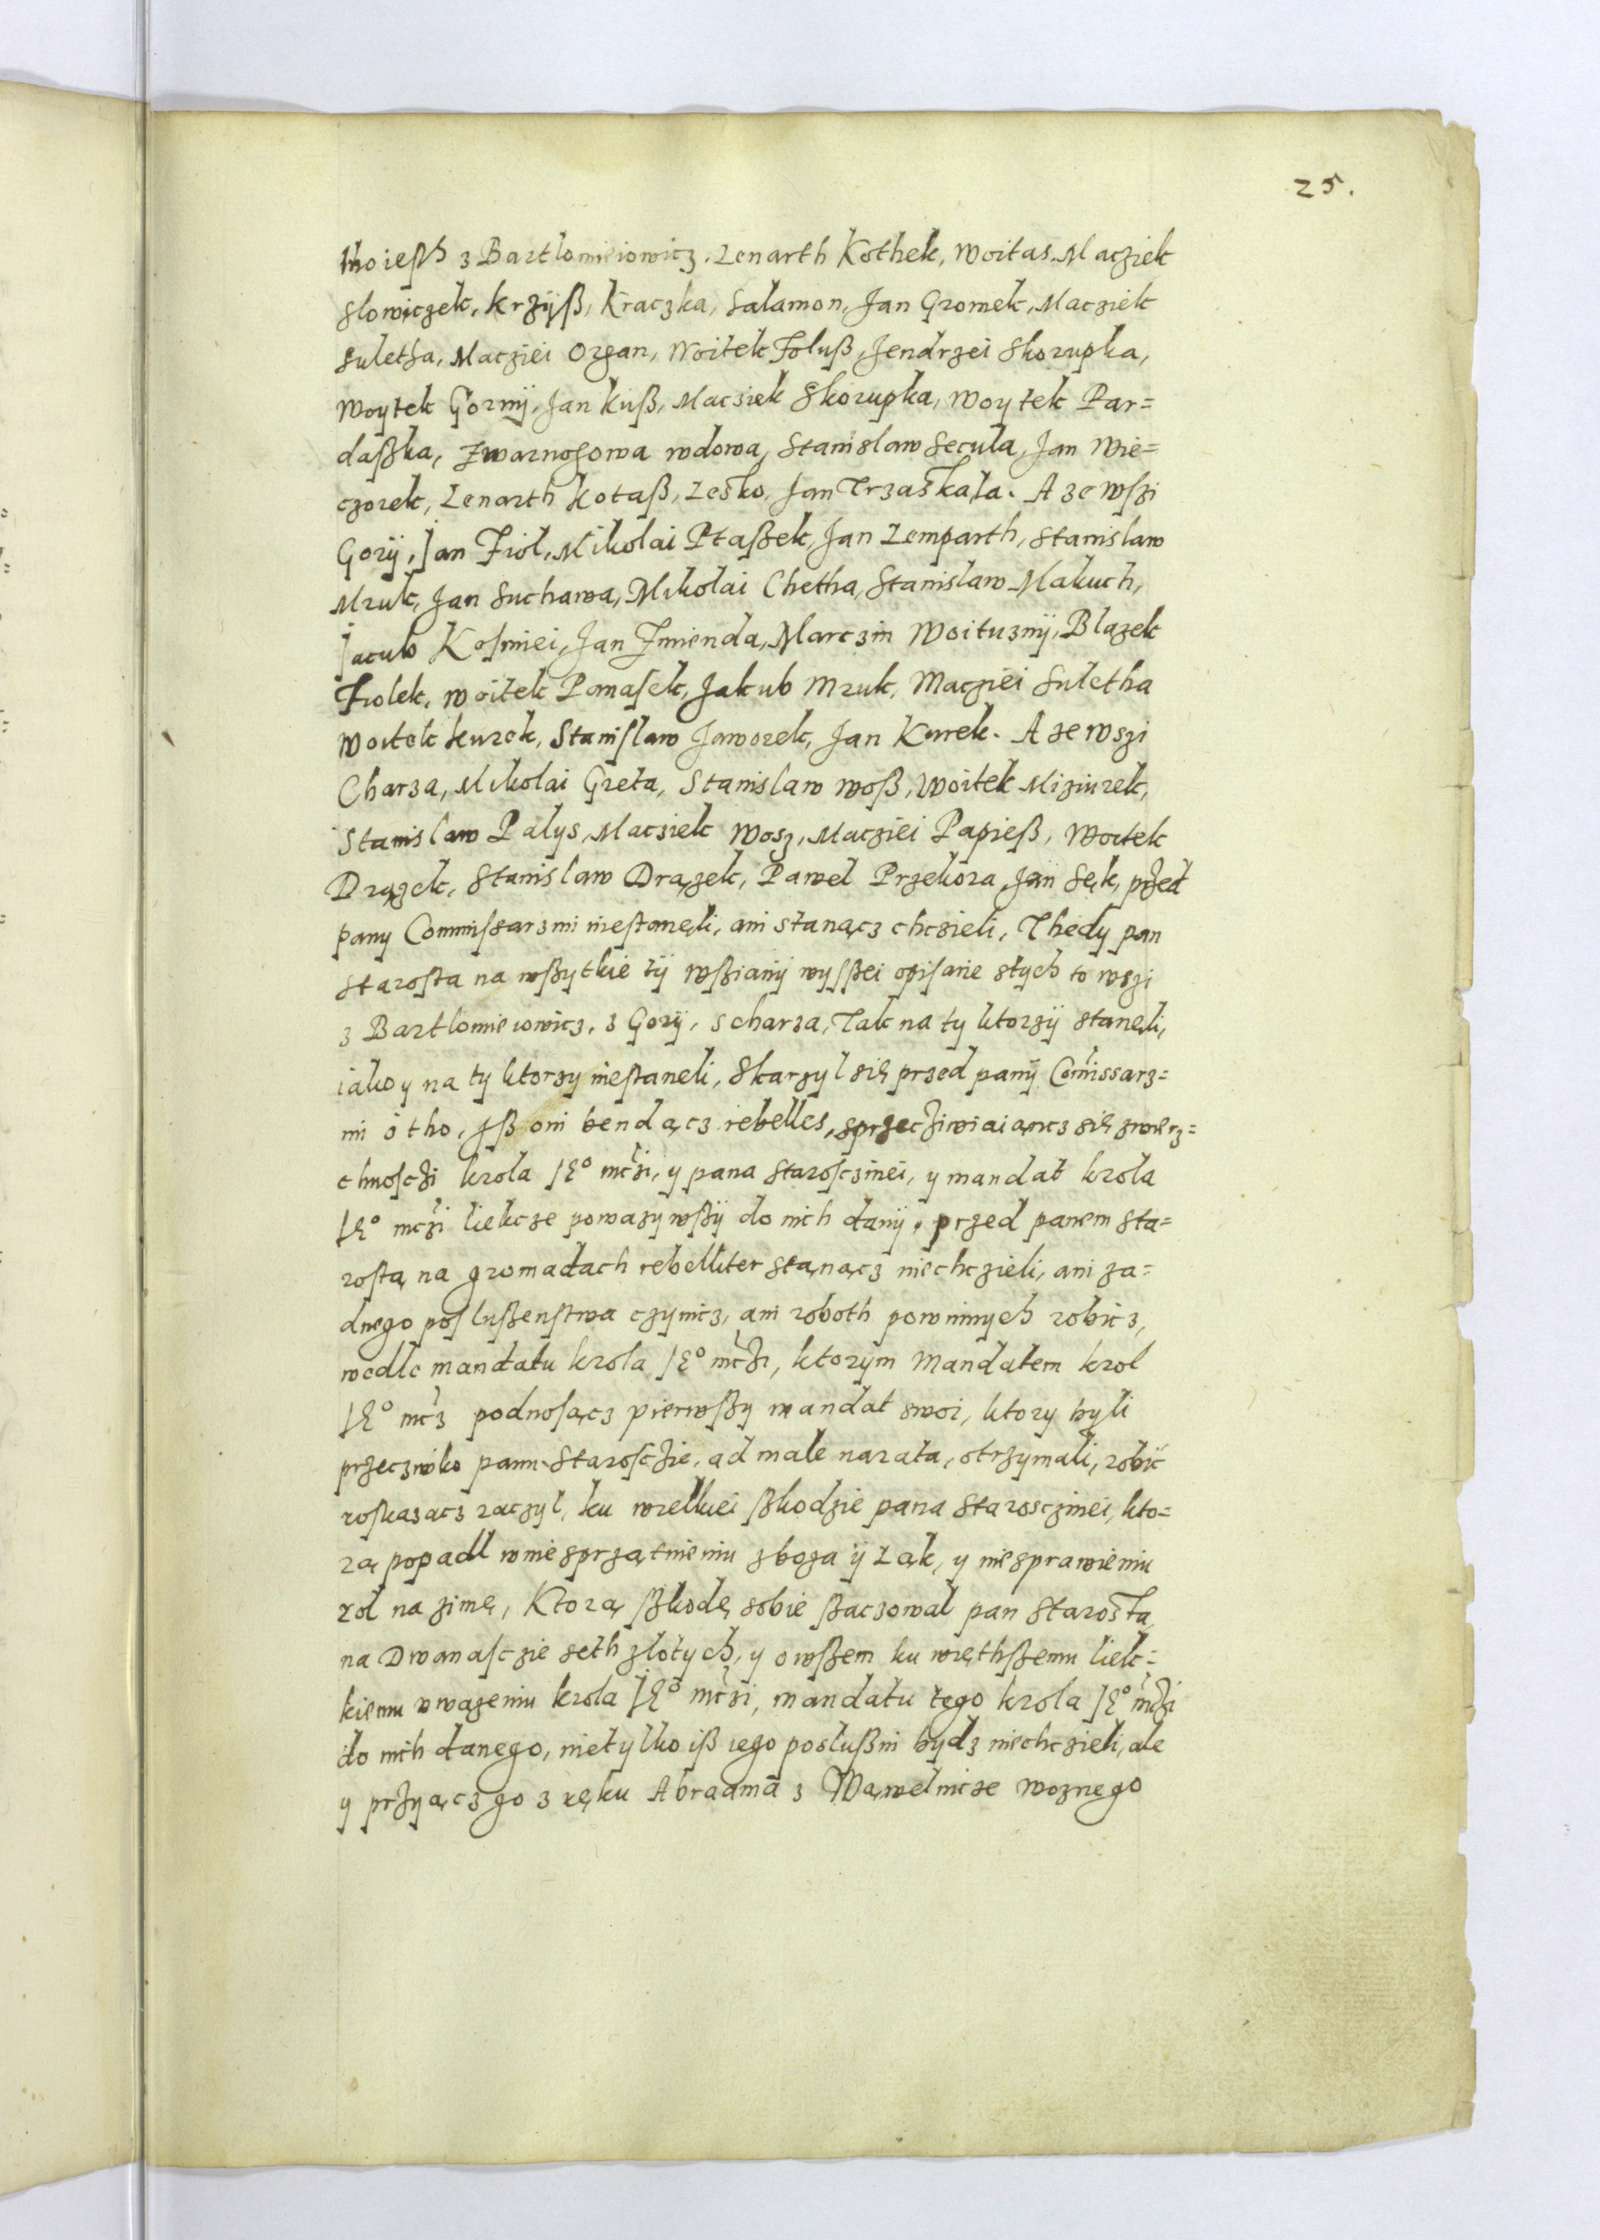 25.
z Bartlomieiowicz. Lenarth Kothek, Woitas. Macziek
Slowiczek, Krzÿß, Kraczka, Salamon, Jan Gromek, Macziek
Suletha, Macziei Organ, Woitek Foluß, Jendrzei Skorupka,
Woytek Gornÿ, Jan Kuß, Macziek Skorupka, Woytek Par=
daßka, wdowa, Stanislaw Secula, Jan Wie=
czorek, Lenarth Kotaß, Lesko, Jan Trzaskala. A ze wſzi
Gorÿ, Jan Fiol, Mikolai Ptaßek, Jan Lemparth, Stanislaw
Mruk, Jan Suchawa, Mikolai Chetha, Stanislaw Makuch,
Jacub Koſmiei, Jan Zmienda, Marczin Woituznÿ, Blazek
Fiolek, Woitek Pomaſek, Jakub Mruk, Macziei Suletha
Woitek Kurek, Staniſlaw Jaworek, Jan Kurek. A ze wszi
Charza, Mikolai Greta, Stanislaw Woß, Woitek Miziurek,
Stanislaw Palys, Macziek Wosz, Macziei Papieß, Woitek
Drązek, Stanislaw Drązek, Pawel Przekora, Jan Sęk, przed
pany Commiſsarzmi nieſtanęli, ani stanącz chczieli, Thedy pan
Staroſta na wßytkie tÿ wßianÿ wyſßei opiſane stych to wszi
z Bartlomieiowicz, z Gorÿ, s charza, Tak na ty ktorzÿ stanęli,
iako y na ty ktorzy nieſtaneli, Skarzyl się przed panÿ Comissarz=
mi o tho, Jß oni bendącz rebelles, sprzecziwiaiąncz się zwierz=
chnoſczi krola JE° mczi, y pana Staroſczinei, y mandat krola
JE° mczi liekcze powazywßÿ do nich danÿ, przed panem Sta=
roſtą na gromadach rebelliter stąnącz niechczieli, ani za=
dnego poſlußenſtwa czynicz, ani roboth powinnych robicz,
wedle mandatu krola JE° mczi, ktorÿm Mandatem krol
JE° mcz podnoſącz pierwßy mandat swoi, ktory byli
przeczwiko panu Staroſczie, ad male narata, otrzymali, robić
roſkazacz raczyl, ku wielkiei ßkodzie pana Starosczinei, kto=
rą popadl wniesprzątnieniu zboza ÿ Ląk, y niesprawieniu
rol na zimę, Ktorą ßkodę sobie ßaczowal pan Starosta
na Dwanaſczie seth zlotych, y owßem ku więthßemu liek=
kiemu vwazeniu krola JE° mczi, mandatu tego krola JE° mczi
do nich danego, nietylko iß iego poslußni bydz niechczieli, ale
y przyącz go z ręku Abraama z Wąwelnicze woznego